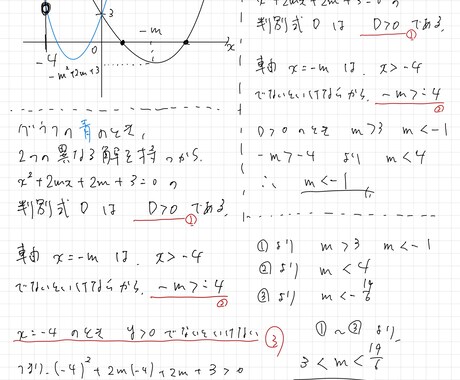 3
-m
0
x
-4
-m²+2m+3
グラフの青のとき、
2つの異なる解を持つから.
x²+2mx+2m+3=0 の
判別式 D は D>0 ① である.
軸 x=-m は. x>-4
でないといけないから. -m>-4
②
x=-4 のとき y>0 でないといけない ③
つまり. (-4)²+2m(-4)+2m+3>0
判別式 D は D>0 ① である.
軸 x=-m は. x>-4
でないといけないから. -m>-4
②
D>0 のとき m>3 m<-1
-m>-4 より m<4
∴ m<-1
①より m>3 m<-1
②より m<4
③より m<19/6
①~③ より.
3<m<19/6